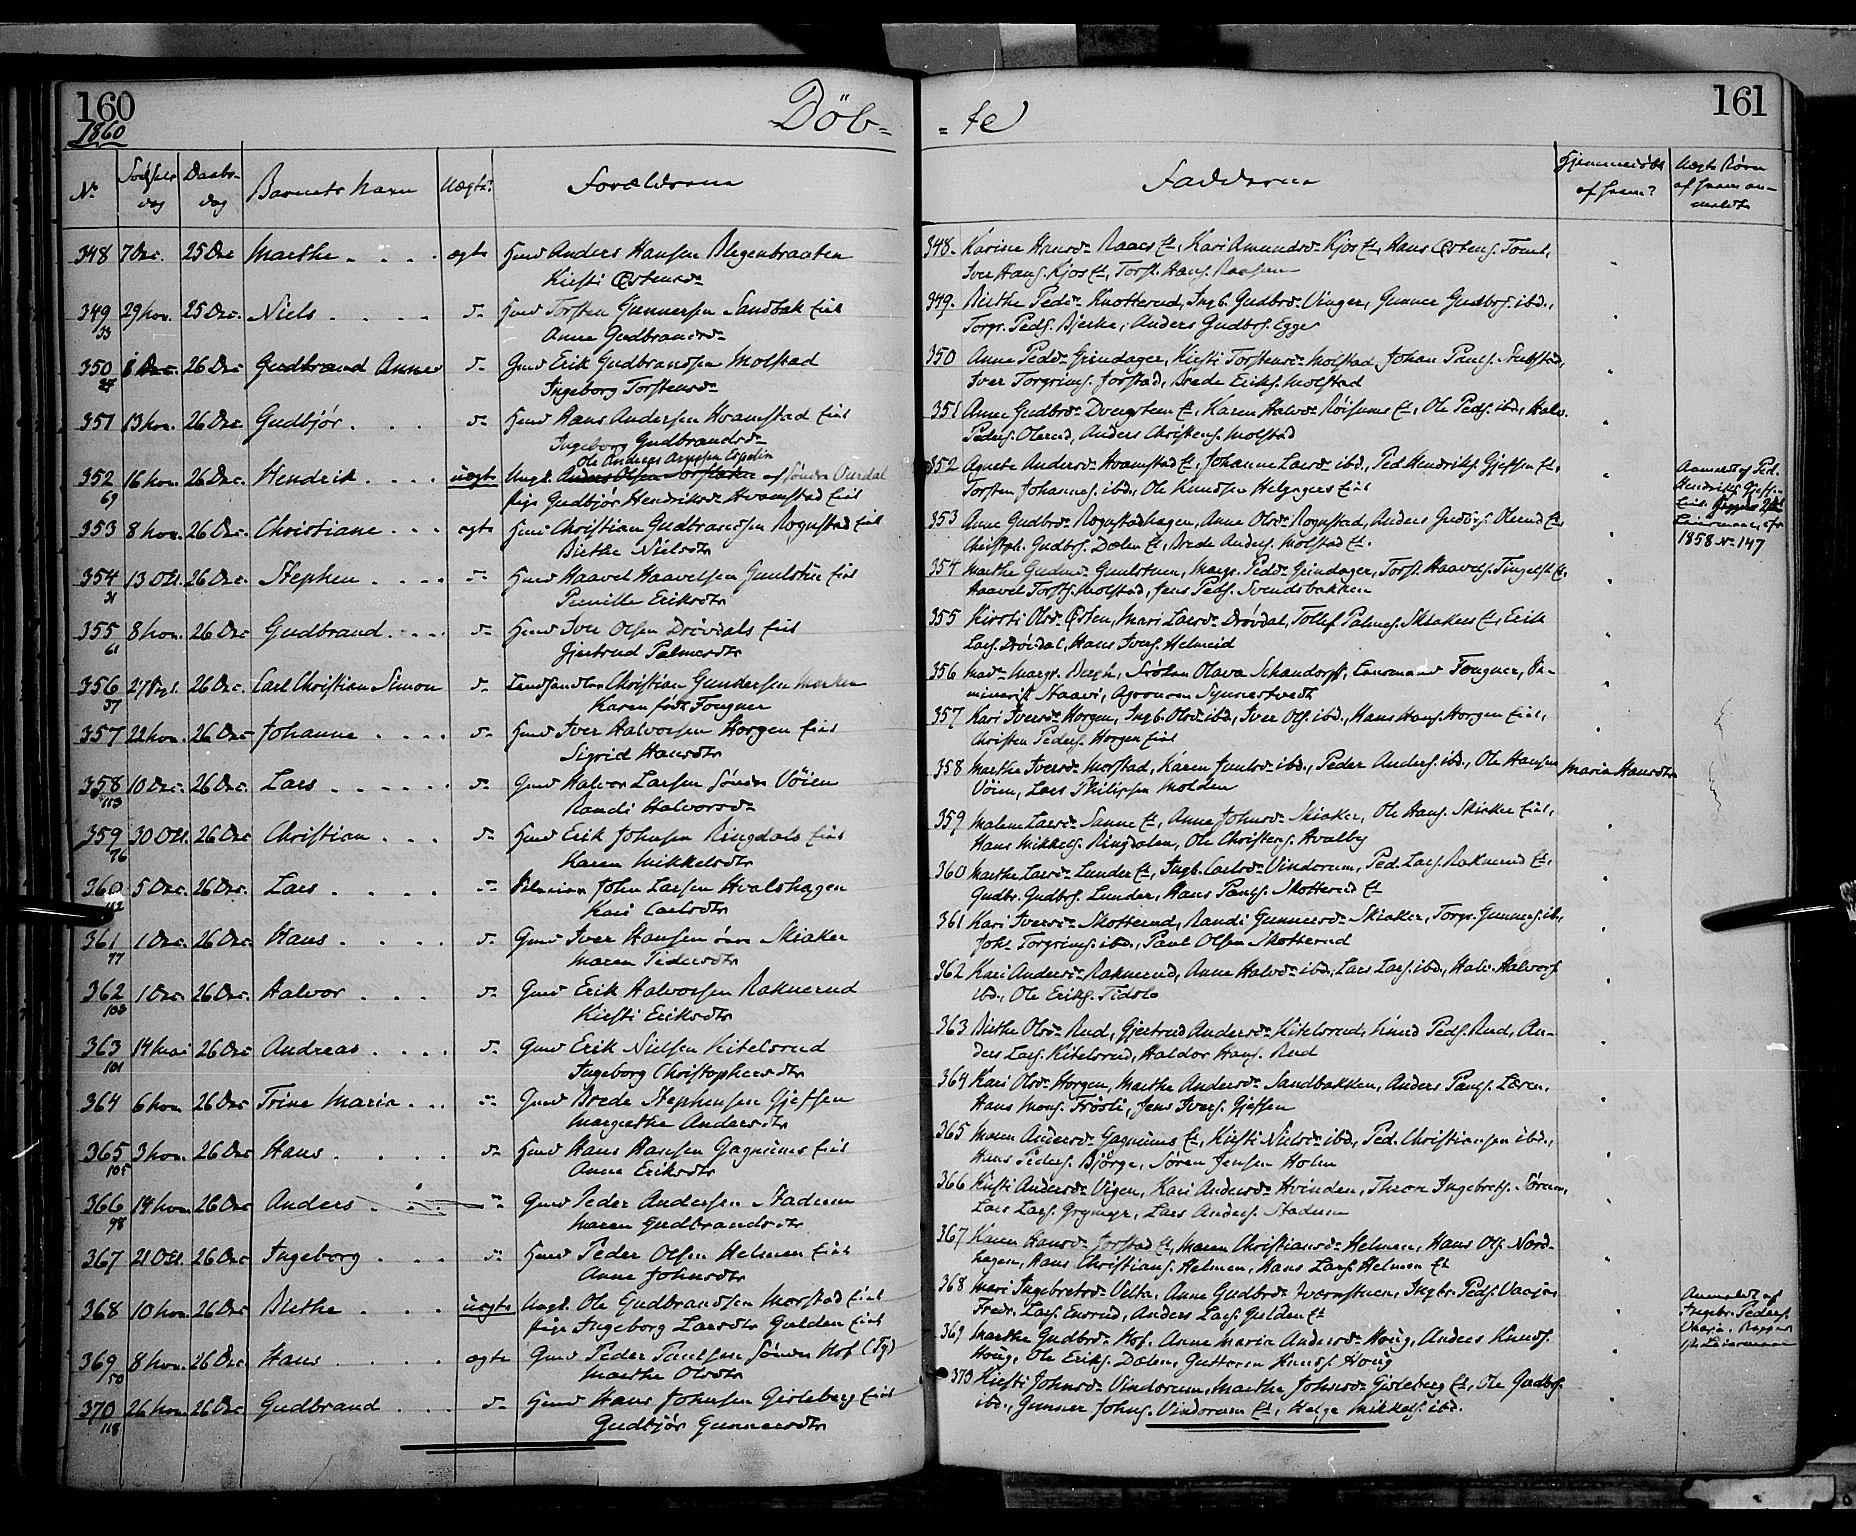 160
161
1860
Döb-
-te
No Fødsels dag Daabs dag Barnets Navn Uægte? Forældrene
Fadderne Hjemmedøbt af hvem? Uægte Børn af hvem anmeldt
348 7 Dec. 25 Dec Marthe ægte Anders Hansen
Kirsti Østensd.
349 29 Nov. 25 Dec. Niels Torsten Gunnersen Sandbak Eiel
33 Anne Gudbrandsd.
350 26 Dec Gudbrand Annes Gmd Erik Gudbrandsen Molstad
Ingeborg Torstensd.
351 13 Nov. 26 Dec Gudbjør Hans Andersen Hvamstad Eiel
Ingeborg Gudbrandsd.
352 16 Nov. 26 Dec. Hendrik uægte Ungk. af Søndre Aurdal
69 Pige Gudbjør Hendriksd. Hvamstad Eiel
353 8 Nov. 26 Dec. Christiane ægte Christian Gudbrandsen Rognstad Eiel
Birthe Nielsdtr
354 13 Oct. 26 Dec. Stephen Haavel Haavelsen Eiel
31 Pernille Eriksdtr
355 8 Nov. 26 Dec Gudbrand Iver Olsen Drøvdals Eiel
61 Gjertrud Palmesdtr
356 26 Dec. Carl Christian Simon Landhandler Christian Gundersen
37 Karen født Fougner
357 22 Nov. 26 Dec Johanne Iver Halvorsen Horgen Eiel
Sigrid Hansdtr
358 10 Dec. 26 Dec. Lars Gmd Halvor Larsen Søndre Vöien
113 Randi Halvorsd.
359 30 Oct. 26 Dec. Christian Erik Johnsen Ringdals Eiel
76 Karen Mikkelsdtr
360 5 Dec. 26 Dec. Lars John Larsen Hvalshagen
112 Kari Carlsdtr
361 1 Dec. 26 Dec Hans Gmd Iver Hansen øvre Skiaker
77 Maren Pedersdtr
362 1 Dec. 26 Dec. Halvor Gmd Erik Halvorsen Raknerud
103 Kirsti Eriksdtr
363 14 Nov 26 Dec Andreas Gmd Erik Nielsen Kitelsrud
101 Ingeborg Christophersdtr
364 6 Nov 26 Dec Trine Maria Gmd Brede Stephensen Gjefsen
Margrethe Andersdtr
365 3 Nov. 26 Dec Hans Hans Hansen Gagnums Eiel
105 Anne Eriksdtr
366 14 Nov 26 Dec Anders Gmd Peder Andersen Stadum
98 Maren Gudbrandsdtr
367 21 Oct. 26 Dec. Ingeborg Peder Olsen Helmen Eiel
Anne Johnsdtr
368 10 Nov. 26 Dec Birthe uægte Ungk. Ole Gudbrandsen Morstad Eiel
Pige Ingeborg Larsdtr Gulden Eiel
369 8 Nov. 26 Dec. Hans ægte Gmd Peder Paulsen Søndre Hof
50 Marthe Olsdtr
370 26 Nov 26 Dec Gudbrand Hans Johnsen Gisleberg Eiel
118 Gudbjør Gunnersdtr
348. Karine Hansd. Raaes Et., Kari Amundsd. Kjos Et., Hans Østens.
Iver Hans. Kjos Et., Torst. Hans.
349. Birthe Pedd. Knotterud, Ingb. Gudbrd. Vinger, Gunner Gudbrs. ibd.,
Torgr. Peds. Bjerke, Anders Gudbrs. Egge
350 Anne Pedd. Grindager, Kirsti Torstensd. Molstad, Johan Pauls.
Iver Torgrims. Jorstad, Brede Eriks. Molstad
351 Anne Gudbrd. Dvergsten Et., Karen Halvd. Røisums Et., Ole Peds. ibd., Halv.
Peders. Olerud, Anders Christens. Molstad
352 Agnete Andersd. Hvamstad Et., Johanne Larsd. ibd., Ped. Hendriks. Gjefsen Et.,
Torsten Johannes. ibd., Ole Knudsen Helgagers Eiel
Anmeldt af Ped. Hendriks. Gjefs.
1858 No 147
353 Anne Gudbrd. Rognstadhagen, Anne Olsd. Rognstad, Anders Gudbrs. Olerud Et.,
Christoph. Gudbrs. Dælen Et., Brede Anders. Molstad Et.
354 Marthe Margr. Pedd. Grindager, Torst. Haavels. Tingelst. Et.,
Haavel Torsts. Molstad, Jens Peds. Svendsbakken
355 Kirsti Olsd. Østen, Mari Larsd. Drøvdal, Tollef Palmes. Skiakers Et., Erik
Lars. Drøvdal, Hans Ivers. Helmeid
356 Mad. Margr. Bergh, Frøken Olava Schandorff, Lensmand Fougner,
Agronom Synnestvedt
357 Kari Iversd. Horgen, Ingb. Olsd. ibd., Iver Ols. ibd., Hans Hans. Horgen Eiel,
Christen Peders. Horgen Eiel
358 Marthe Iversd. Morstad, Karen ibd., Peder Anders. ibd., Ole Hansen
Vöien, Lars Philipsen Molden
Maria Hansdtr
359 Malene Larsd. Sanne Et., Anne Johnsd. Skiaker, Ole Hans. Skiaker Eiel,
Hans Mikkels. Ringdalen, Ole Christens. Hvalby
360 Marthe Larsd. Lunder Et., Ingb. Carlsd. Vindorum, Ped. Lars. Raknerud Et.,
Gudbr. Gudbrs. Lunder, Hans Pauls. Skotterud Et
361 Kari Iversd. Skotterud, Randi Gunnersd. Skiaker, Torgr. Gunners. ib.,
Joh. Torgrims. ibd., Paul Olsen Skotterud
362 Kari Andersd. Raknerud, Anne Halvd. ibd., Lars Lars. ibd., Halv. Halvors.
ibd., Ole Eriks.
363 Birthe Olsd. Rud, Gjertrud Andersd. Kitelsrud, Peds. Rud, An-
ders Lars. Kitelsrud, Haldor Hans. Rud
364 Kari Olsd. Horgen, Marthe Andersd. Sandbakken, Anders Pauls.
Hans Mons. Frøsli, Jens Ivers. Gjefsen
365 Maren Andersd. Gagnums Et., Kirsti Nielsd. ibd., Ped. Christiansen ibd.,
Hans Peders. Bjørge, Søren Jensen Holm
366 Kirsti Andersd. Vigen, Kari Andersd. Hvinden, Thron Ingebrets.
Lars Lars. Grymyr, Lars Anders. Stadum
367 Karen Hansd. Jorstad Et., Maren Christiansd. Helmen, Hans Ols. Nord-
hagen, Hans Christians. Helmen, Hans Lars. Helmen Et
368 Mari Ingebretsd. Velta, Anne Gudbrd. Ingbr. Peds.
Fredr. Lars. Anders Lars. Gulden Et
Anmeldt af Ingebr. Peders.
369 Marthe Gudbrd. Hof, Anne Maria Andersd. Houg, Anders Knuds.
Houg, Ole Eriks. Dælen, Guttorm Knuds. Houg
370 Kirsti Johnsd. Vindorum, Marthe Johnsd. Gisleberg Et., Ole Gudbrs.
ibd., Gunner Johns. Vindorum Et., Helge Mikkels. ibd.